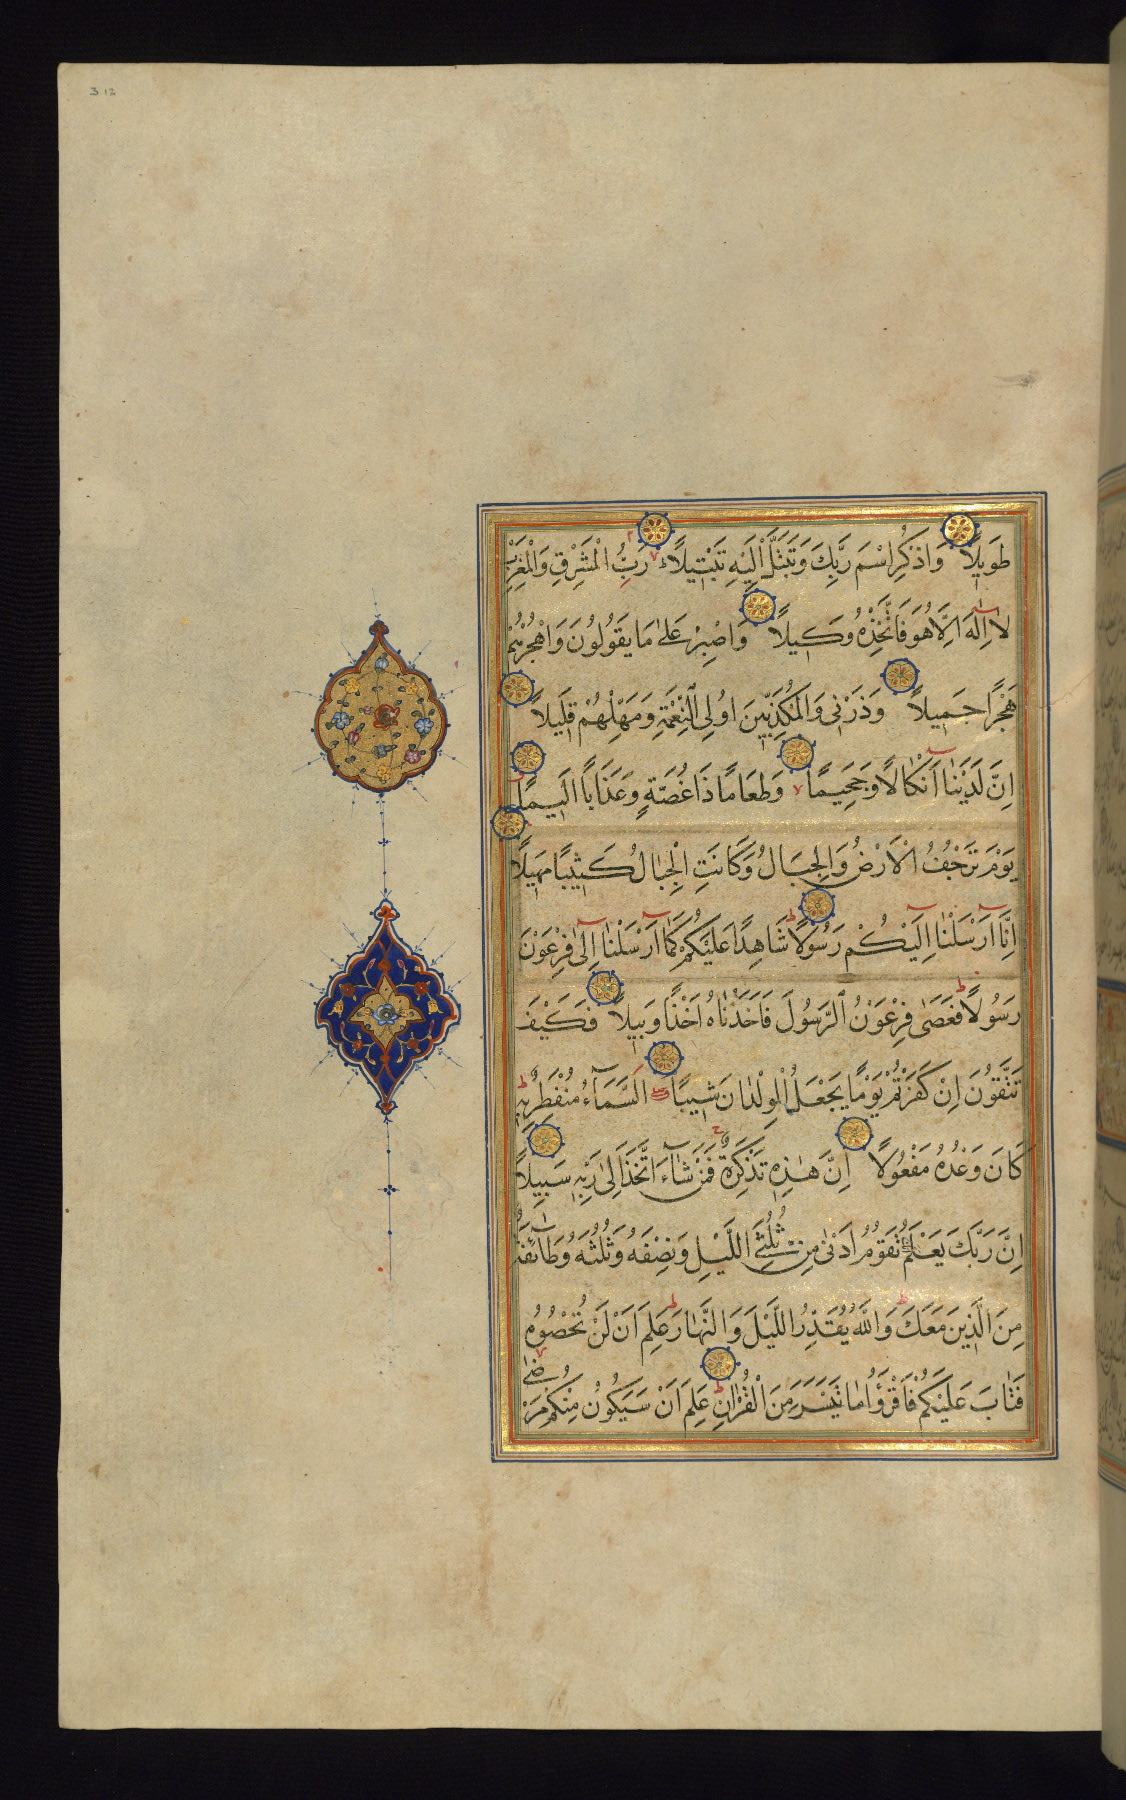 3 12
طَوِيلًا وَاذْكُرِ اسْمَ رَبِّكَ وَتَبَتَّلْ اِلَيْهِ تَبْتِيلًا رَبُّ الْمَشْرِقِ وَالْمَغْرِبِ
لَا اِلٰهَ اِلَّا هُوَ فَاتَّخِذْهُ وَكِيلًا وَاصْبِرْ عَلٰى مَا يَقُولُونَ وَاهْجُرْهُمْ
هَجْرًا جَمِيلًا وَذَرْنِى وَالْمُكَذِّبِينَ اُولِى النَّعْمَةِ وَمَهِّلْهُمْ قَلِيلًا
اِنَّ لَدَيْنَا اَنْكَالًا وَجَحِيمًا وَطَعَامًا ذَا غُصَّةٍ وَعَذَابًا اَلِيمًا
يَوْمَ تَرْجُفُ الْاَرْضُ وَالْجِبَالُ وَكَانَتِ الْجِبَالُ كَثِيبًا مَهِيلًا
اِنَّا اَرْسَلْنَا اِلَيْكُمْ رَسُولًا شَاهِدًا عَلَيْكُمْ كَمَا اَرْسَلْنَا اِلٰى فِرْعَوْنَ
رَسُولًا فَعَصٰى فِرْعَوْنُ الرَّسُولَ فَاَخَذْنَاهُ اَخْذًا وَبِيلًا فَكَيْفَ
تَتَّقُونَ اِنْ كَفَرْتُمْ يَوْمًا يَجْعَلُ الْوِلْدَانَ شِيبًا اَلسَّمَآءُ مُنْفَطِرٌ بِهِ
كَانَ وَعْدُهُ مَفْعُولًا اِنَّ هٰذِهِ تَذْكِرَةٌ فَمَنْ شَآءَ اتَّخَذَ اِلٰى رَبِّهِ سَبِيلًا
اِنَّ رَبَّكَ يَعْلَمُ اَنَّكَ تَقُومُ اَدْنٰى مِنْ ثُلُثَىِ اللَّيْلِ وَنِصْفَهُ وَثُلُثَهُ وَطَآئِفَةٌ
مِنَ الَّذِينَ مَعَكَ وَاللّٰهُ يُقَدِّرُ اللَّيْلَ وَالنَّهَارَ عَلِمَ اَنْ لَنْ تُحْصُوهُ
فَتَابَ عَلَيْكُمْ فَاقْرَؤُا مَا تَيَسَّرَ مِنَ الْقُرْاٰنِ عَلِمَ اَنْ سَيَكُونُ مِنْكُمْ مَرْضٰى